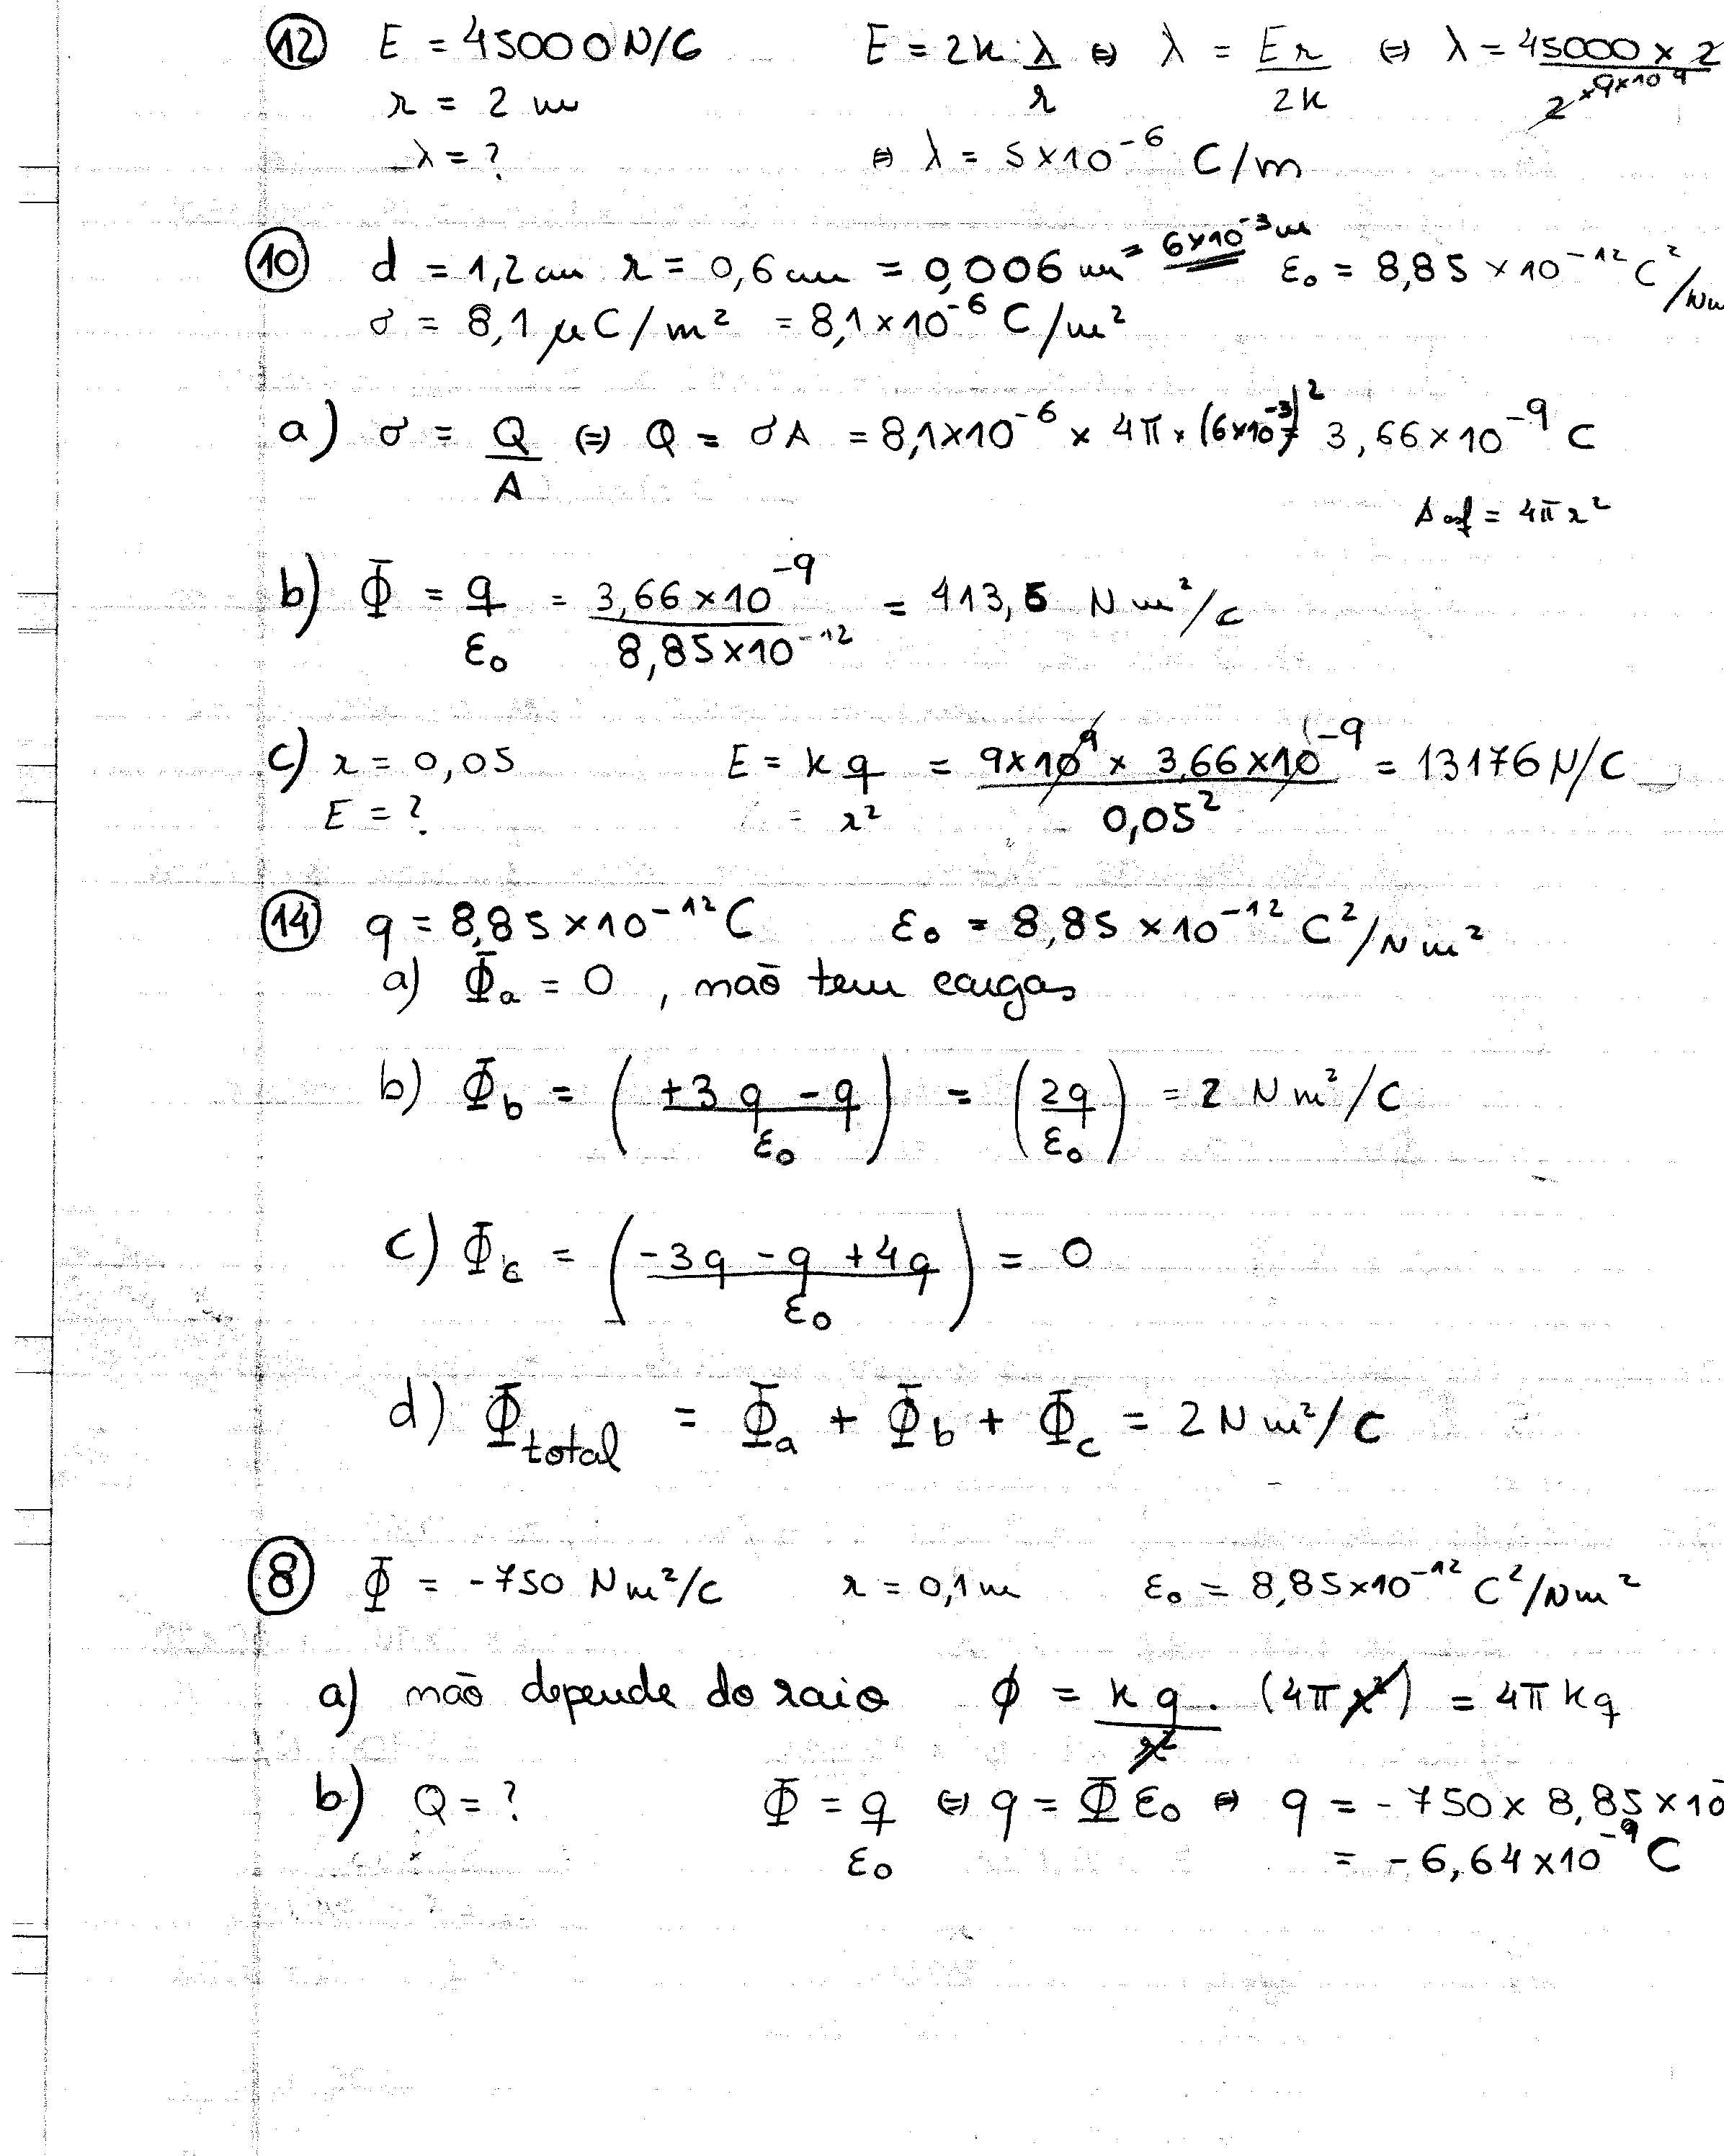 ⑫ E = 45000 N/C   E = 2k λ/r ⇔ λ = Er/2k ⇔ λ = (45000 × 2)/(2 × 9×10⁹)
r = 2 m
λ = ?   ⇔ λ = 5×10⁻⁶ C/m
⑩ d = 1,2 cm r = 0,6 cm = 0,006 m = 6×10⁻³ m ε₀ = 8,85 × 10⁻¹² C²/Nm
σ = 8,1 μC/m² = 8,1×10⁻⁶ C/m²
a) σ = Q/A ⇔ Q = σA = 8,1×10⁻⁶ × 4π × (6×10⁻³)² = 3,66×10⁻⁹ C
A esf = 4πr²
b) Φ = q/ε₀ = (3,66×10⁻⁹)/(8,85×10⁻¹²) = 413,5 Nm²/C
c) r = 0,05   E = k q/r² = (9×10⁹ × 3,66×10⁻⁹)/0,05² = 13176 N/C
E = ?
⑭ q = 8,85×10⁻¹² C   ε₀ = 8,85 × 10⁻¹² C²/Nm²
a) Φa = 0 , não tem cargas
b) Φb = ((+3q - q)/ε₀) = (2q/ε₀) = 2 Nm²/C
c) Φc = ((-3q - q + 4q)/ε₀) = 0
d) Φtotal = Φa + Φb + Φc = 2 Nm²/C
⑧ Φ = -750 Nm²/C   r = 0,1 m   ε₀ = 8,85×10⁻¹² C²/Nm²
a) não depende do raio   ϕ = kq/r² . (4πr²) = 4πkq
b) Q = ?   Φ = q/ε₀ ⇔ q = Φε₀ ⇔ q = -750 × 8,85 × 10⁻
= -6,64×10⁻⁹ C